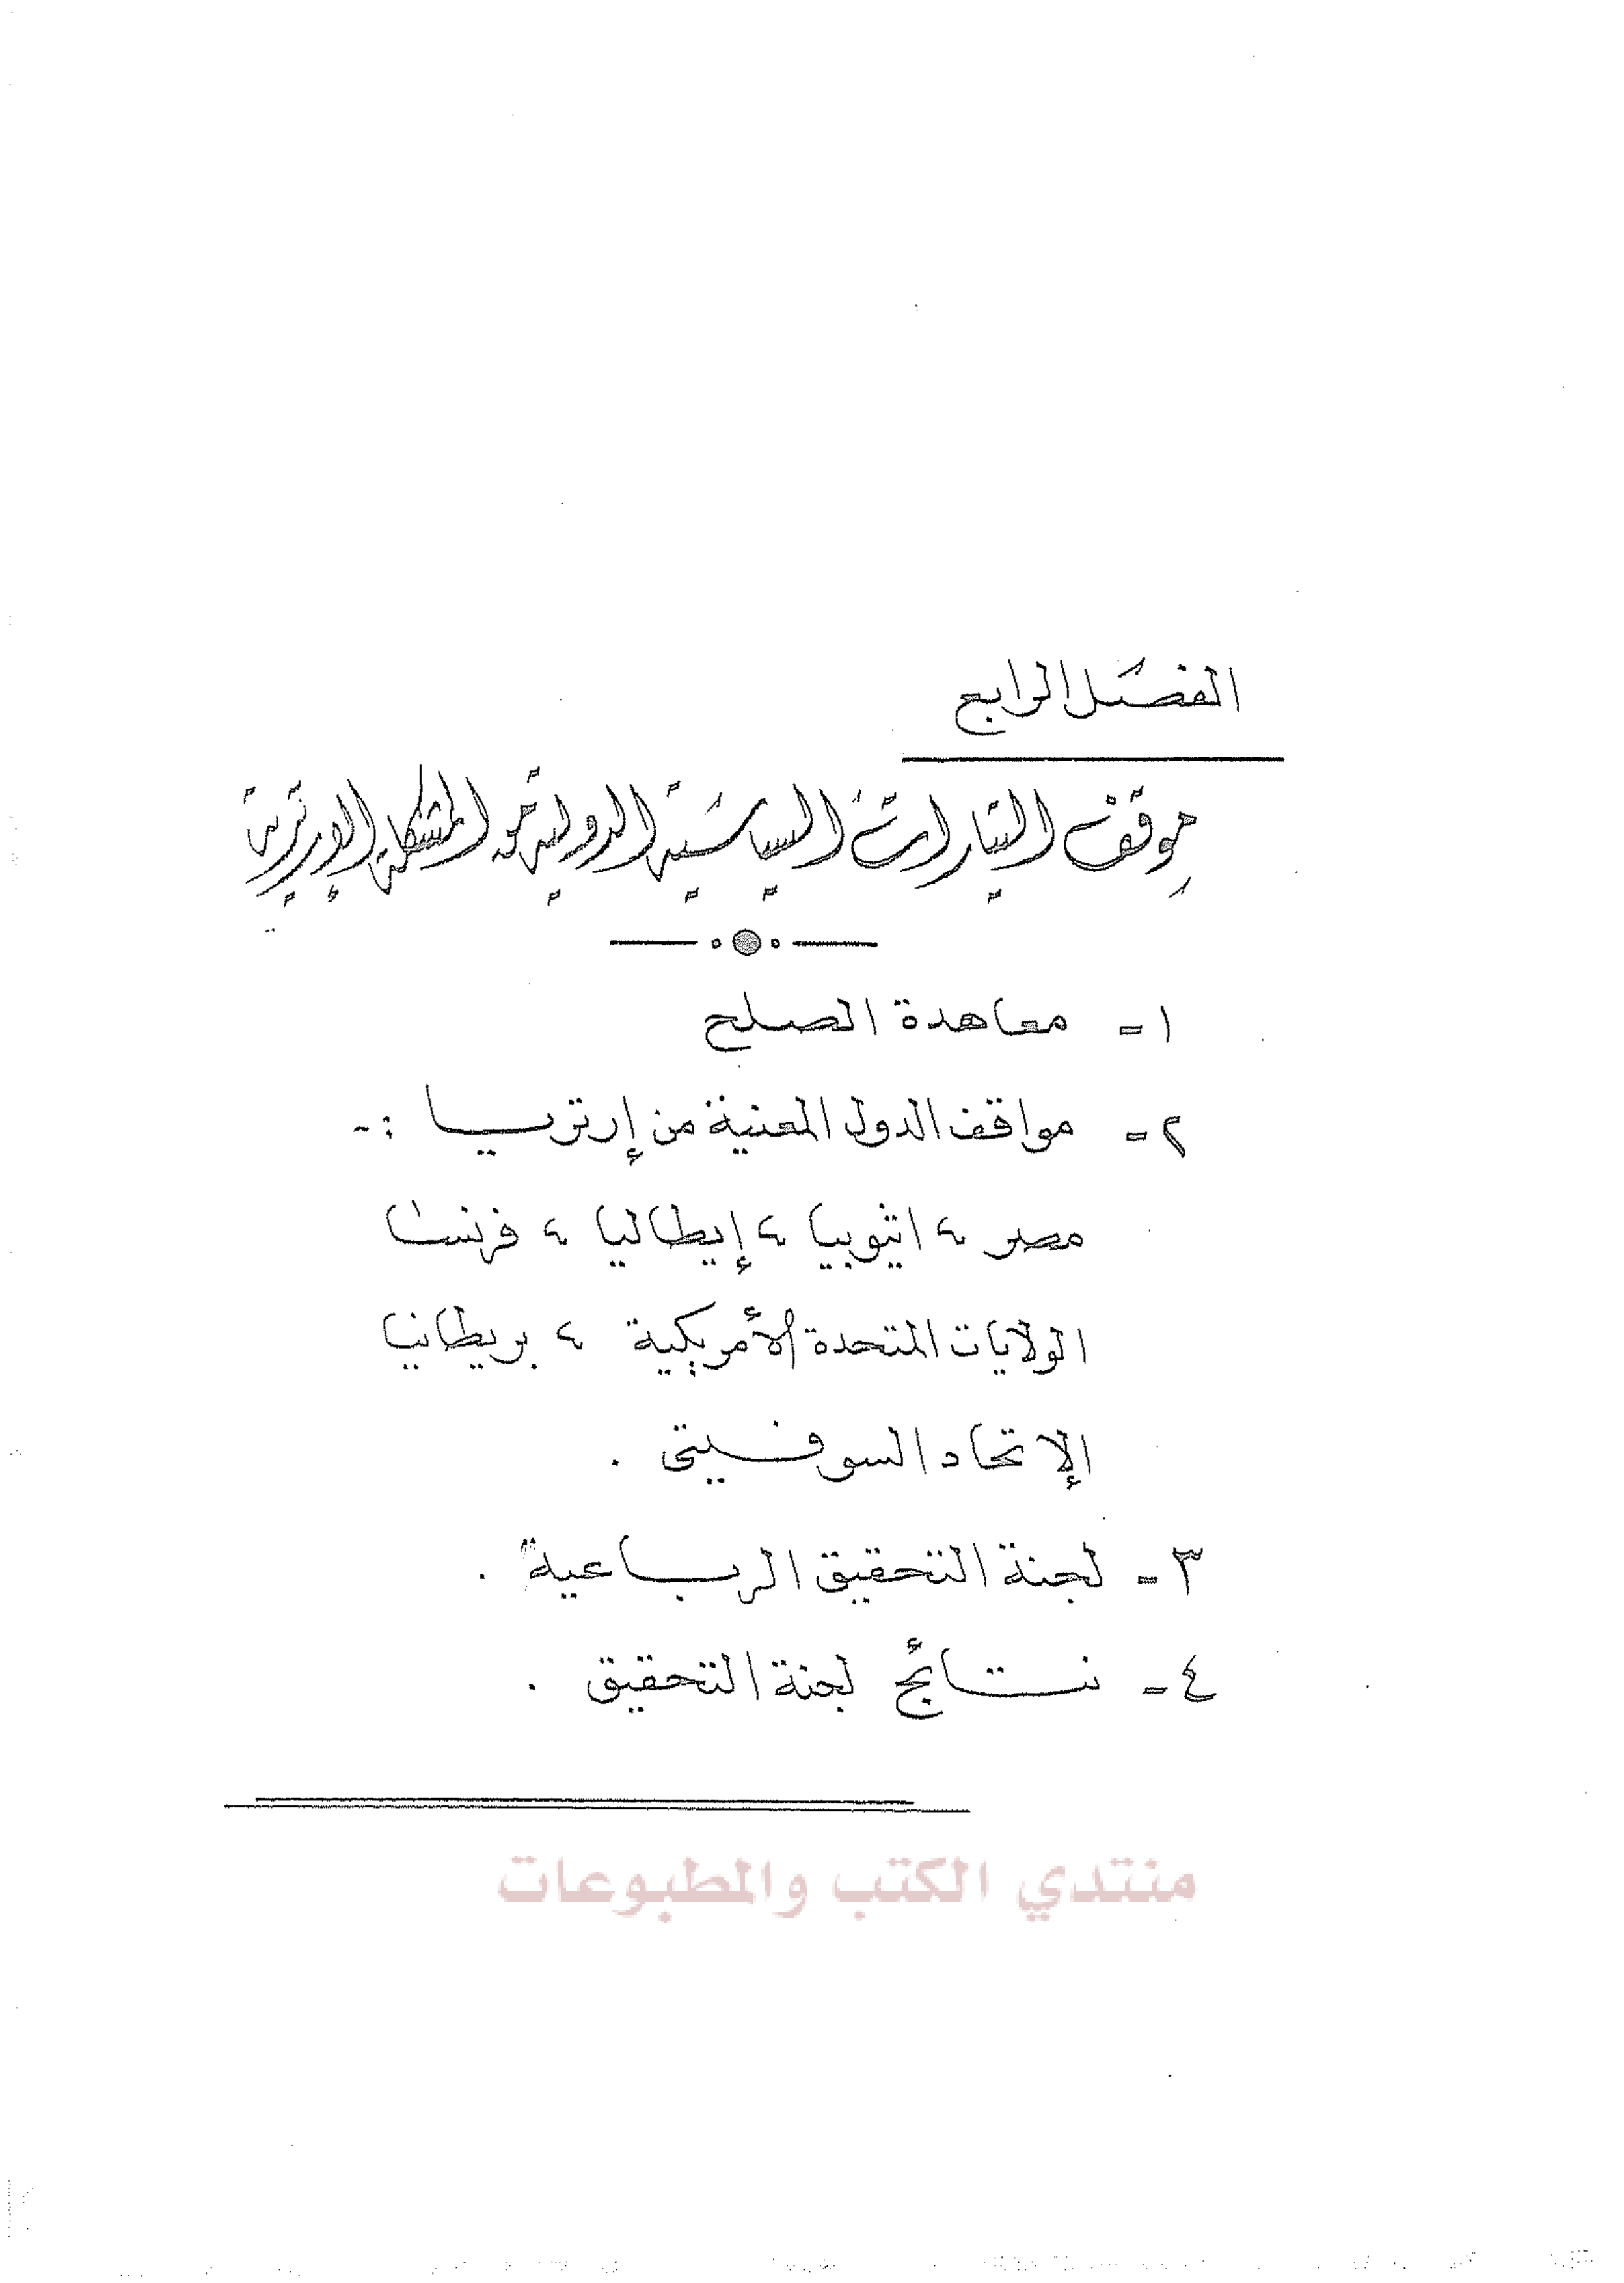 الفصل الرابع
موقف التيارات السياسية الدولية من المشكلة الإرترية
١- معاهدة الصلح
٢- مواقف الدول المعنية من إرتريا :-
مصر ، اثيوبيا ، إيطاليا ، فرنسا
الولايات المتحدة الأمريكية ، بريطانيا
الإتحاد السوفيتى .
٣- لجنة التحقيق الرباعية .
٤- نتائج لجنة التحقيق .
منتدي الكتب والمطبوعات